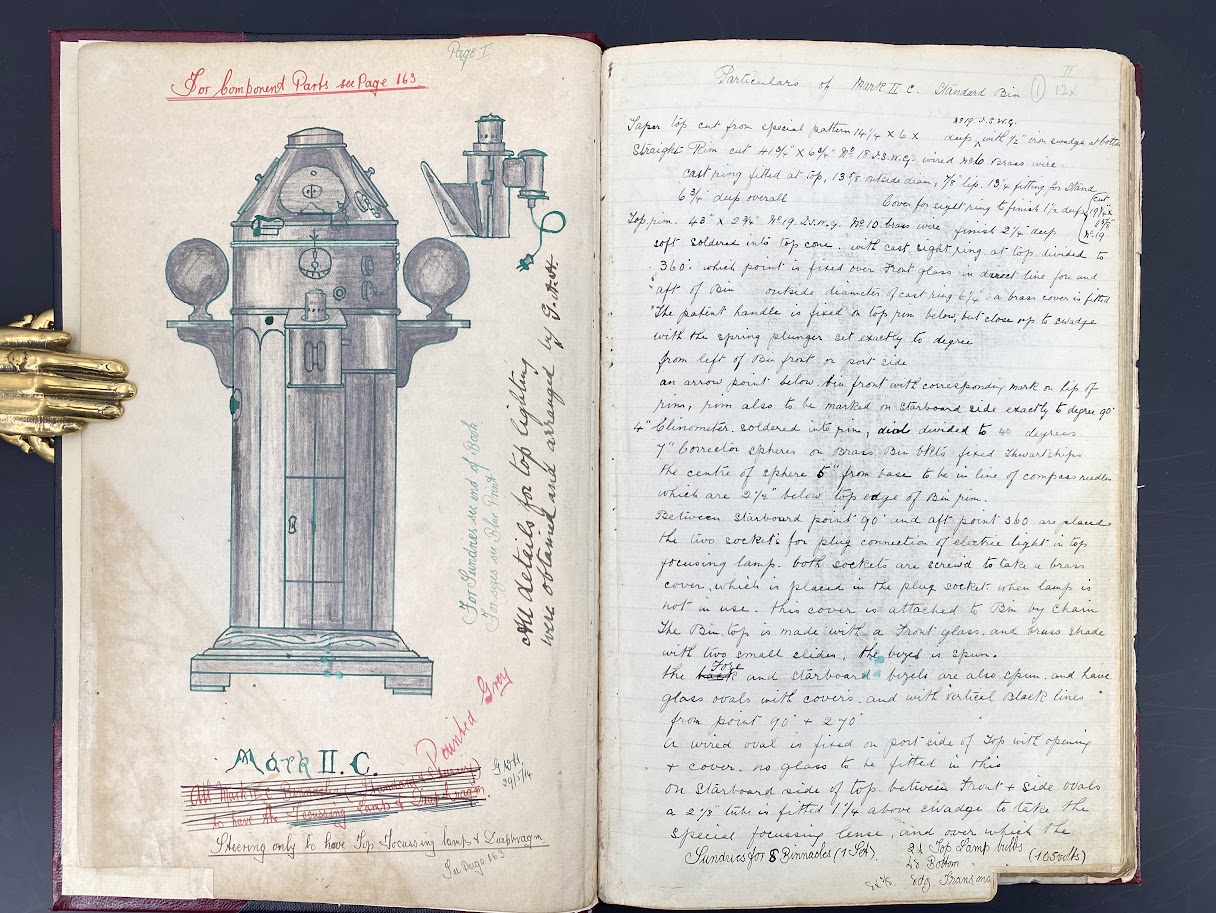 Page I
For Component Parts see Page 163
For Sundries see end of Book
For sizes see Blue Print
All details for top lighting
were obtained and arranged by G.A.H.
Painted Grey
Mark II. C.
29/5/14
to have the Focussing Lamp &
Steering only to have Top Focussing lamp & Diaphragm
See page 163
II
Particulars of Mark II C. Standard Bin ① 12x
No 19. I.S.W.G.
Taper top cut from special pattern 14¼ x 6 x deep, with ½" iron swadge at bottom
Straight Rim cut 41¾" x 6¾" No 18 I.S.W.G. wired No 6 Brass wire
cast ring fitted at top, 13⅝ outside diam, ⅞ lip. 13¼ fitting for Stand
6¾" deep overall Cover for sight ring to finish 1½ deep (Cut
19¾ x
No 19
Top rim. 43" x 2¾" No 19. I.S.W.G. No 10 brass wire finish 2¼" deep
soft soldered into top cone. with cast sight ring at top divided to
360° which point is fixed over Front glass in direct line fore and
aft of Bin outside diameter of cast ring 6¼. a brass cover is fitted
The patent handle is fixed on top rim below, but close up to swadge
with the spring plunger set exactly to degree
from left of Bin front on port side
an arrow point below bin front with corresponding mark on lip of
rim, rim also to be marked on starboard side exactly to degree 90°
4" Clinometer. soldered into rim, dial divided to 40 degrees
7" Corrector spheres on Brass Bin bkts fixed Thwartships
the centre of sphere 5" from base to be in line of compass needles
which are 2½" below top edge of Bin rim.
Between starboard point 90° and aft point 360 are placed
the two sockets for plug connection of electric light in top
focusing lamp. both sockets are screwd to take a brass
cover, which is placed in the plug socket when lamp is
not in use. this cover is attached to Bin by chain
The Bin top is made with a Front glass, and brass shade
with two small slides, the bizel is spun.
Fore
the back and starboard bizels are also spun. and have
glass ovals with covers. and with vertical Black lines
from point 90° + 270°
a wired oval is fixed on port side of Top with opening
+ cover. no glass to be fitted in this
on starboard side of top between Front + side ovals
a 2⅞" tube is fitted 1¼ above swadge to take the
special focussing lense, and over which the
Sundries for 8 Binnacles (1 Set). 24 Top Lamp bulbs
48 Bottom (105 volts)